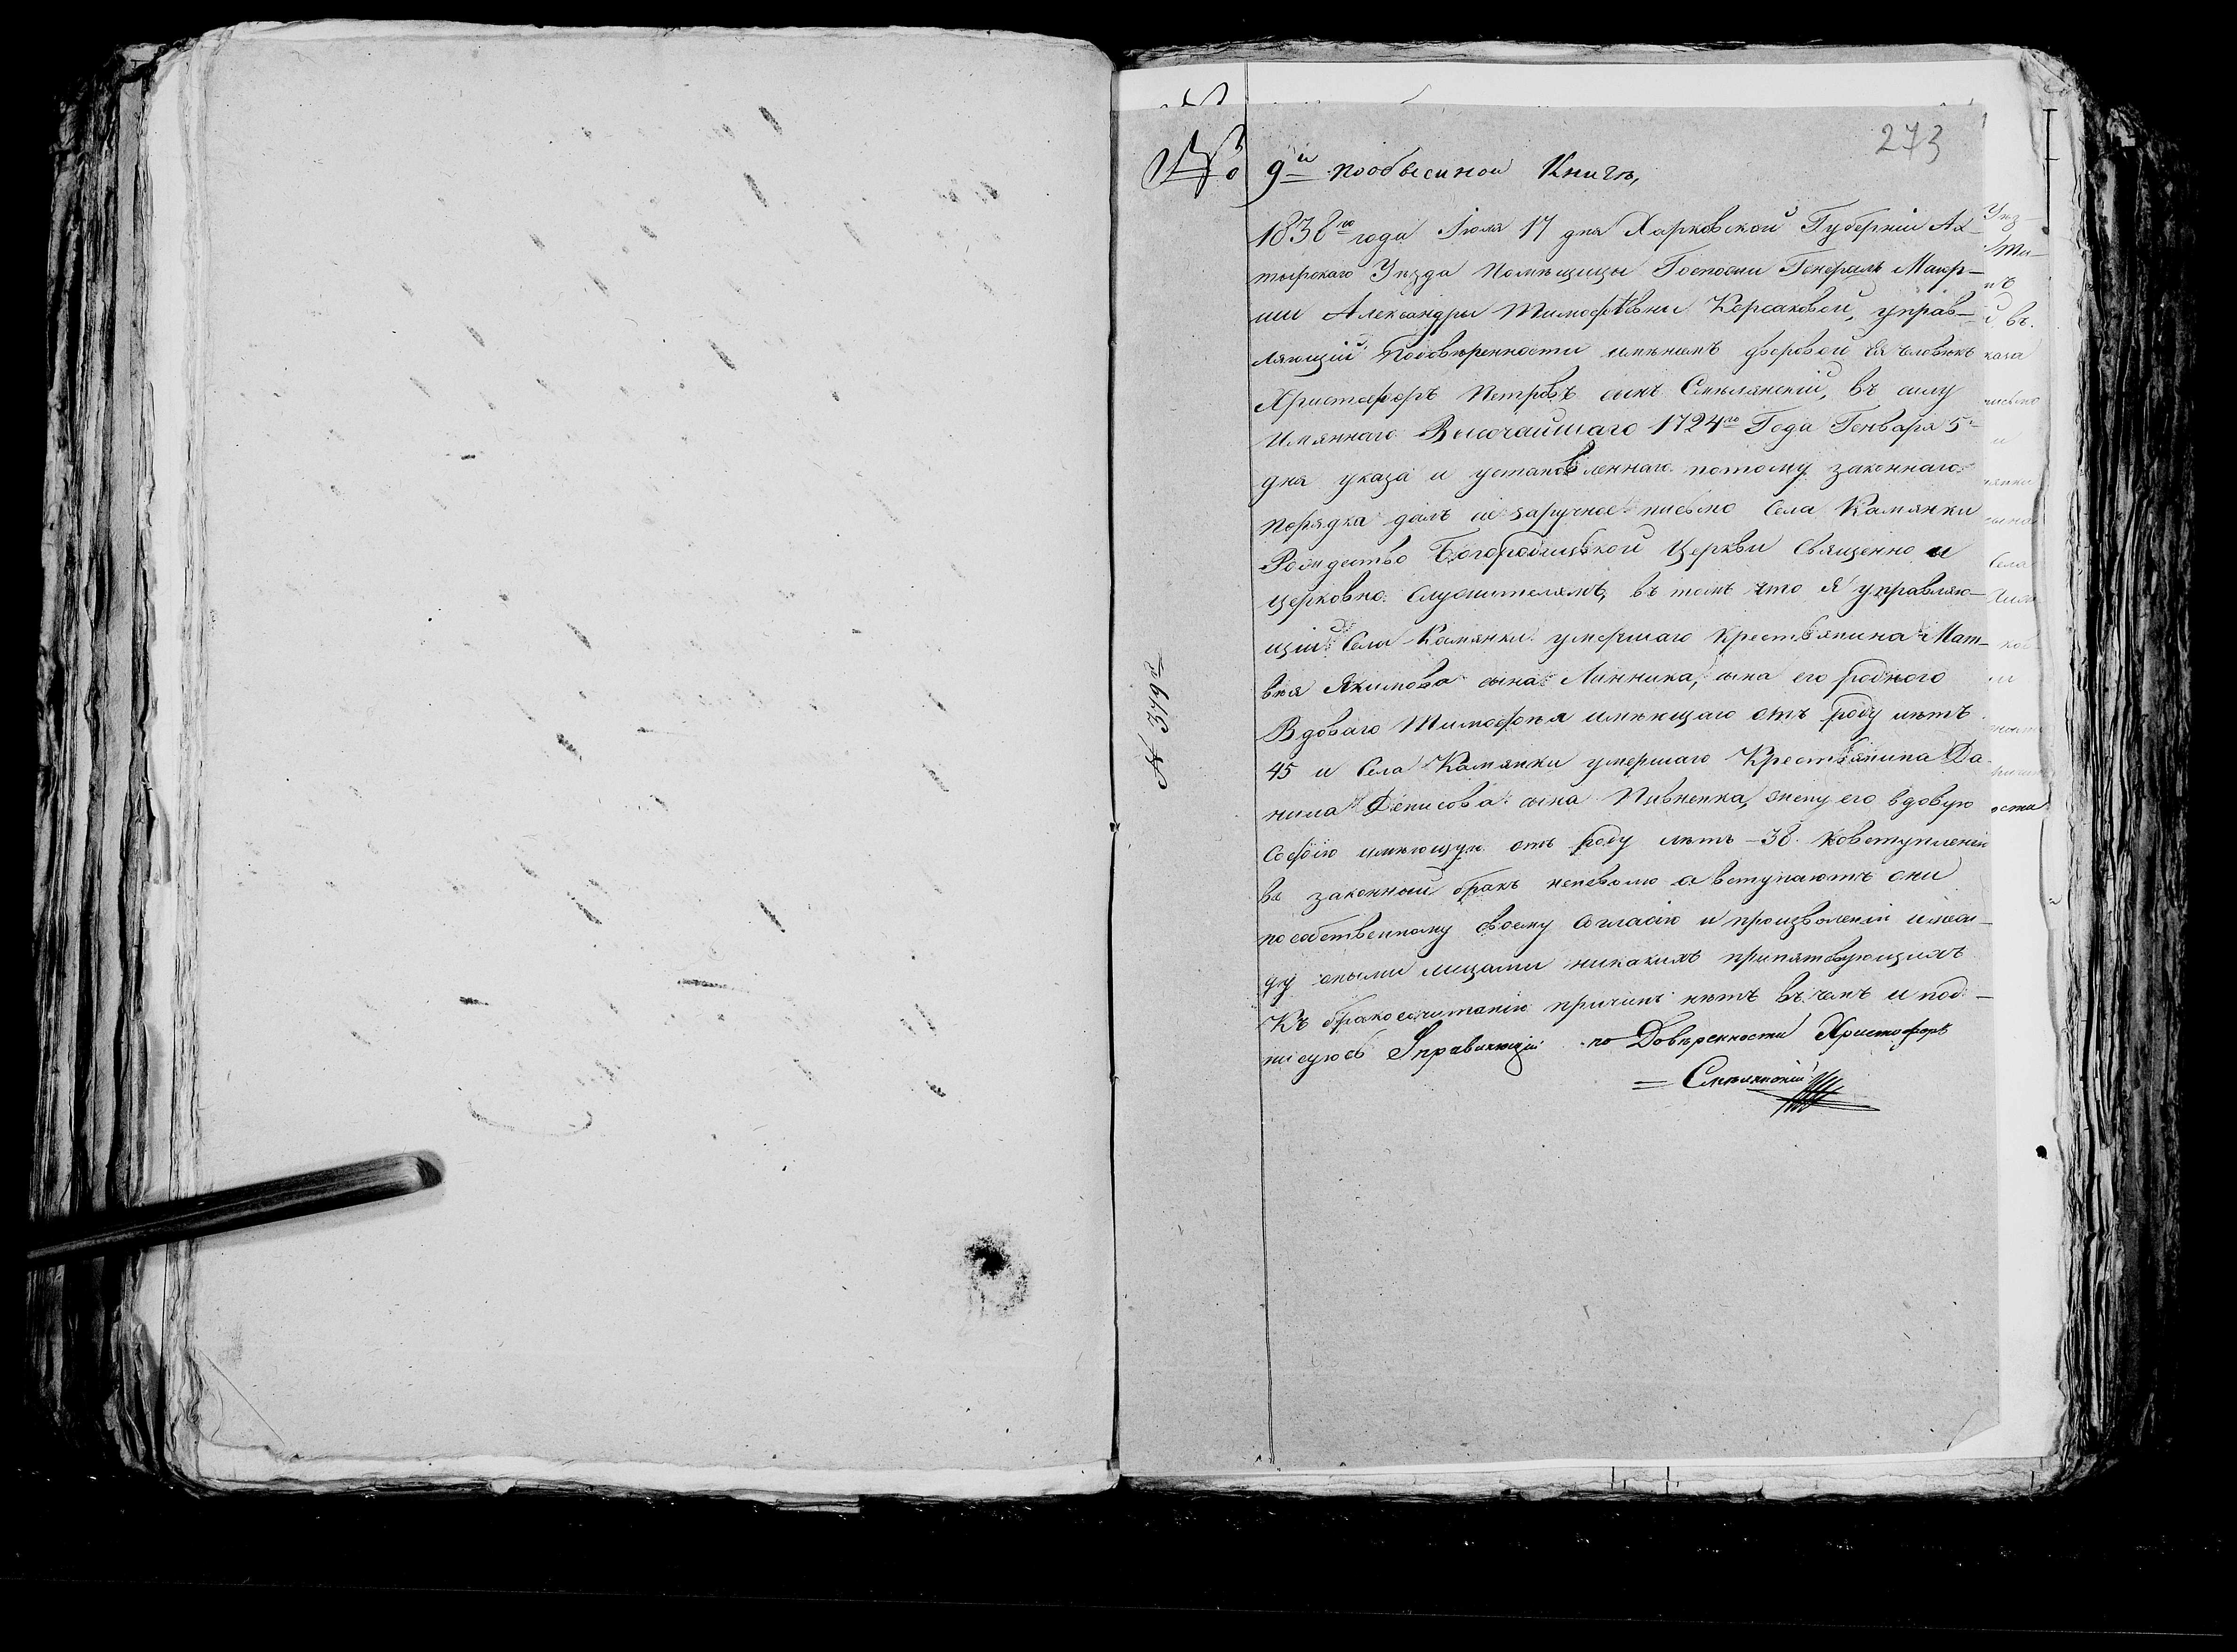 273
№ 9й пообысиной Книгѣ,
1838го года Іюля 17 дня Харковской Губерніи Ах-
тырскаго Уѣзда Помѣщицы Госпожи Генералъ Маіор-
ши Александры Тимофѣевны Корсаковой, управ-
ляющій подовѣренности имѣніемъ дворовой Ея человѣкъ
Христофоръ Петровъ сынъ Смѣлянскій, въ силу
Имяннаго Высочайшаго 1724го Года Генваря 5
дня указа и установленнаго потому законнаго
порядка далъ сіе заручное письмо Села Камянки
Рождество Богородицкой Церкви Священно и
церковно Служителямъ, въ томъ что я управляю-
щій Села Камянки умершаго Крестьянина Мат-
вѣя Якимова сына Линника, сына его родного
Вдоваго Тимофѣя имѣющаго отъ роду лѣтъ
45 и Села Камянки умершаго Крестьянина Да-
нила Денисова сына Пивненка, жену его вдовую
Софію имѣющую отъ роду лѣтъ -38. Ковступленію
въ законный бракъ неневолю а вступаютъ они
пособственному своему согласію и произволенію имеж-
ду оными лицами никакихъ припятствующихъ
Къ бракосочитанію причинъ нѣтъ въ чемъ и под-
писуюсь Управляющій по Довѣренности Христофоръ
= Смѣлянскій
Уѣз-
въ.
каза
Села
ости